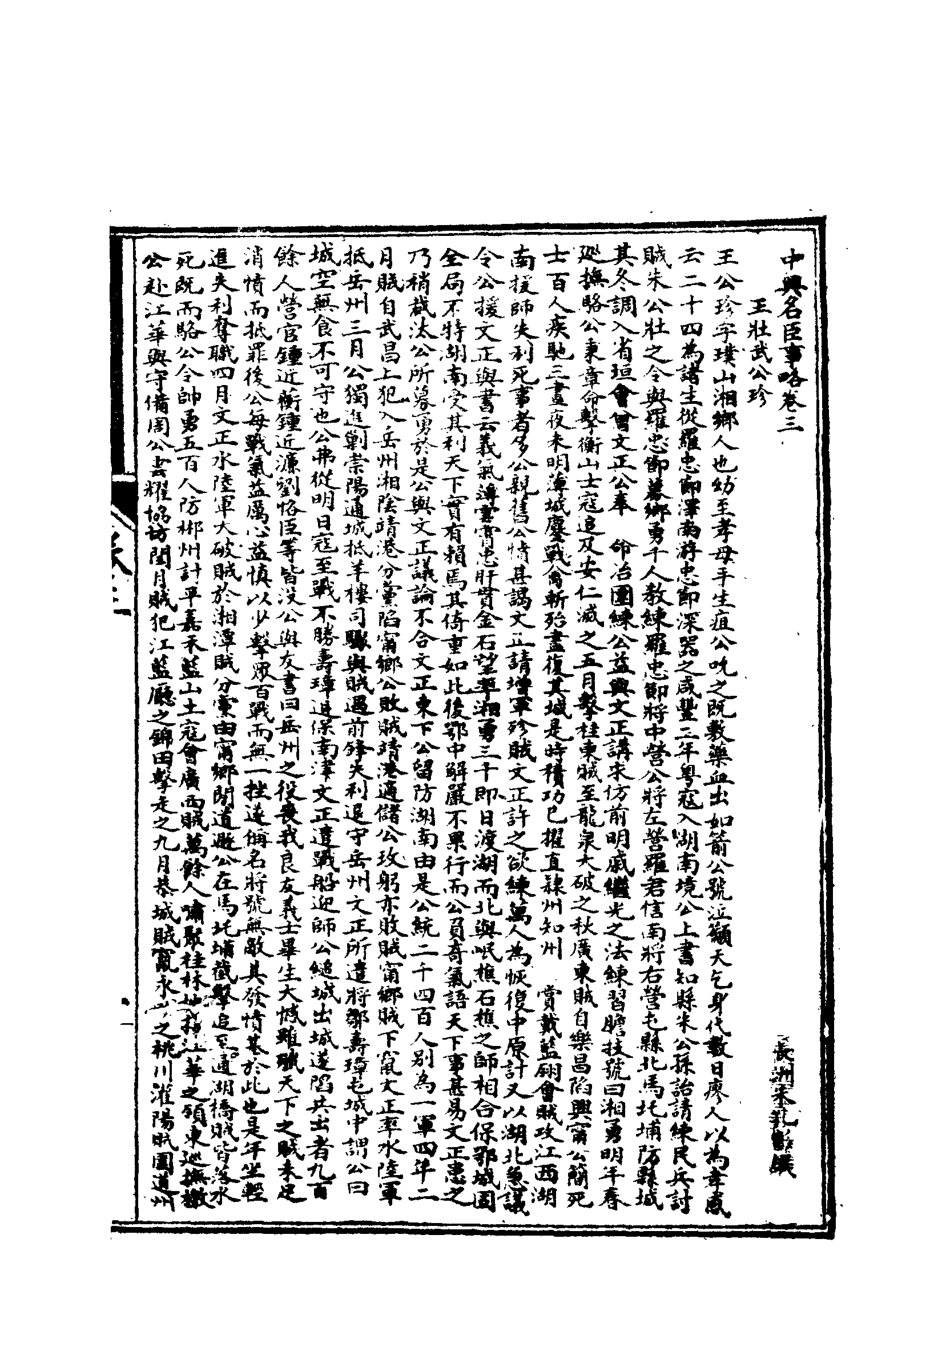 中興名臣事略卷三
長洲朱孔彰撰
王壯武公珍
王公珍字璞山湘鄉人也幼至孝母手生疽公吮之既敷藥血出如箭公號泣籲天乞身代數日瘳人以為孝感
云二十四為諸生從羅忠節澤南游忠節深器之咸豐二年粵寇入湖南境公上書知縣朱公孫詒請練民兵討
賊朱公壯之令與羅忠節募鄉勇千人教練羅忠節將中營公將左營羅君信南將右營屯縣北馬圫埔防縣城
其冬調入省垣會曾文正公奉 命治團練公益與文正講求仿前明戚繼光之法練習膽技號曰湘勇明年春
巡撫駱公秉章命擊衡山土寇追及安仁滅之五月擊桂東賊至龍泉大破之秋廣東賊自樂昌陷興甯公簡死
士百人疾馳三晝夜未明薄城鏖戰禽斬殆盡復其城是時積功已擢直隸州知州 賞戴藍翎會賊攻江西湖
南援師失利死事者多公親舊公憤甚謁文正請增軍殄賊文正許之欲練萬人為恢復中原計又以湖北急議
令公援文正與書云義氣薄雲霄忠肝貫金石望率湘勇三千即日渡湖而北與岷樵石樵之師相合保鄂城固
全局不特湖南受其利天下實有賴焉其倚重如此後鄂中解嚴不果行而公負奇氣語天下事甚易文正患之
乃稍裁汰公所募勇於是公與文正議論不合文正東下公留防湖南由是公統二千四百人別為一軍四年二
月賊自武昌上犯入岳州湘陰靖港分黨陷甯鄉公敗賊靖港適儲公玫躬亦敗賊甯鄉賊下竄文正率水陸軍
抵岳州三月公獨進剿崇陽通城抵羊樓司驟與賊遇前鋒失利退守岳州文正所遣將鄒壽璋屯城中謂公曰
城空無食不可守也公弗從明日寇至戰不勝壽璋退保南津文正遣戰船迎師公縋城出城遂陷兵出者九百
餘人營官鍾近衡鍾近濂劉恪臣等皆沒公與友書曰岳州之役喪我良友義士畢生大憾雖殲天下之賊未足
消憤而抵罪後公每戰氣益厲心益慎以少擊眾百戰而無一挫遂稱名將號無敵其發憤基於此也是年坐輕
進失利奪職四月文正水陸軍大破賊於湘潭賊分黨由甯鄉閒道遯公在馬圫埔截擊追至通湖橋賊皆落水
死既而駱公令帥勇五百人防郴州計平嘉禾藍山土寇會廣西賊萬餘人嘯聚桂林 江華之領東巡撫檄
公赴江華與守備周公雲耀協坊閏月賊犯江藍廳之錦田擊走之九月恭城賊竄永 之桃川灌陽賊圍道州